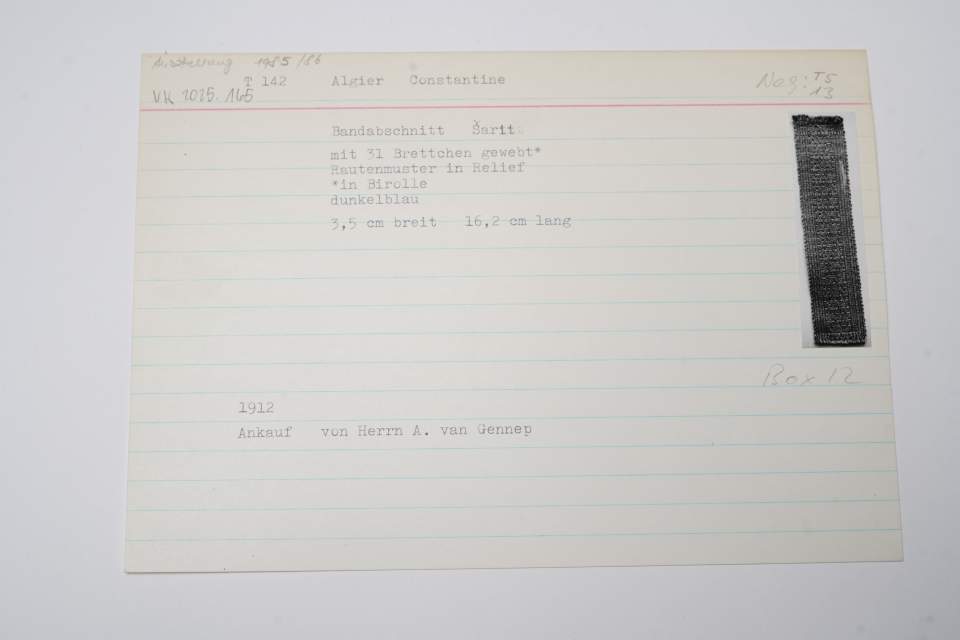 Ausstellung 1985/86
T 142 Algier Constantine
VK 2025.165
Neg: T5
13
Bandabschnitt Šarit
mit 31 Brettchen gewebt*
Rautenmuster in Relief
*in Birolle
dunkelblau
3,5 cm breit 16,2 cm lang
Box 12
1912
Ankauf von Herrn A. van Gennep